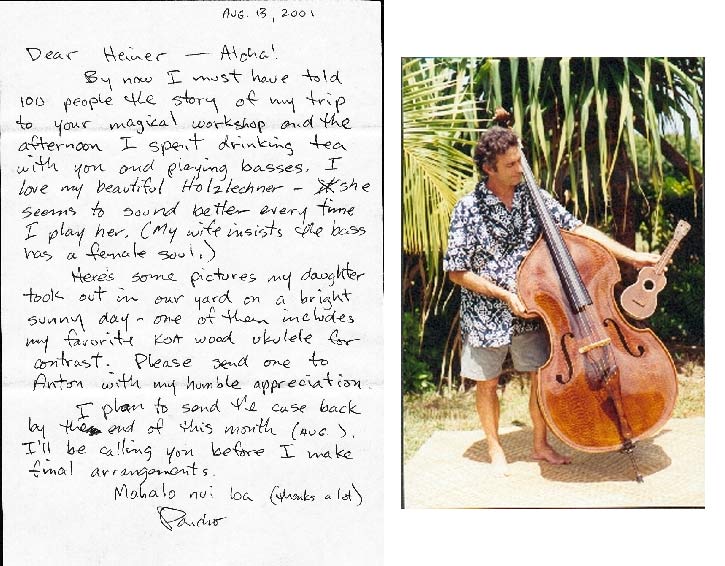 AUG. 13, 2001
Dear Heiner — Aloha!
By now I must have told
100 people the story of my trip
to your magical workshop and the
afternoon I spent drinking tea
with you and playing basses. I
love my beautiful Holzlechner - she
seems to sound better every time
I play her. (My wife insists the bass
has a female soul.)
Here's some pictures my daughter
took out in our yard on a bright
sunny day - one of them includes
my favorite Koa wood ukulele for
contrast. Please send one to
Anton with my humble appreciation.
I plan to send the case back
by the end of this month (AUG.).
I'll be calling you before I make
final arrangements.
Mahalo nui loa (thanks a lot)
Pancho